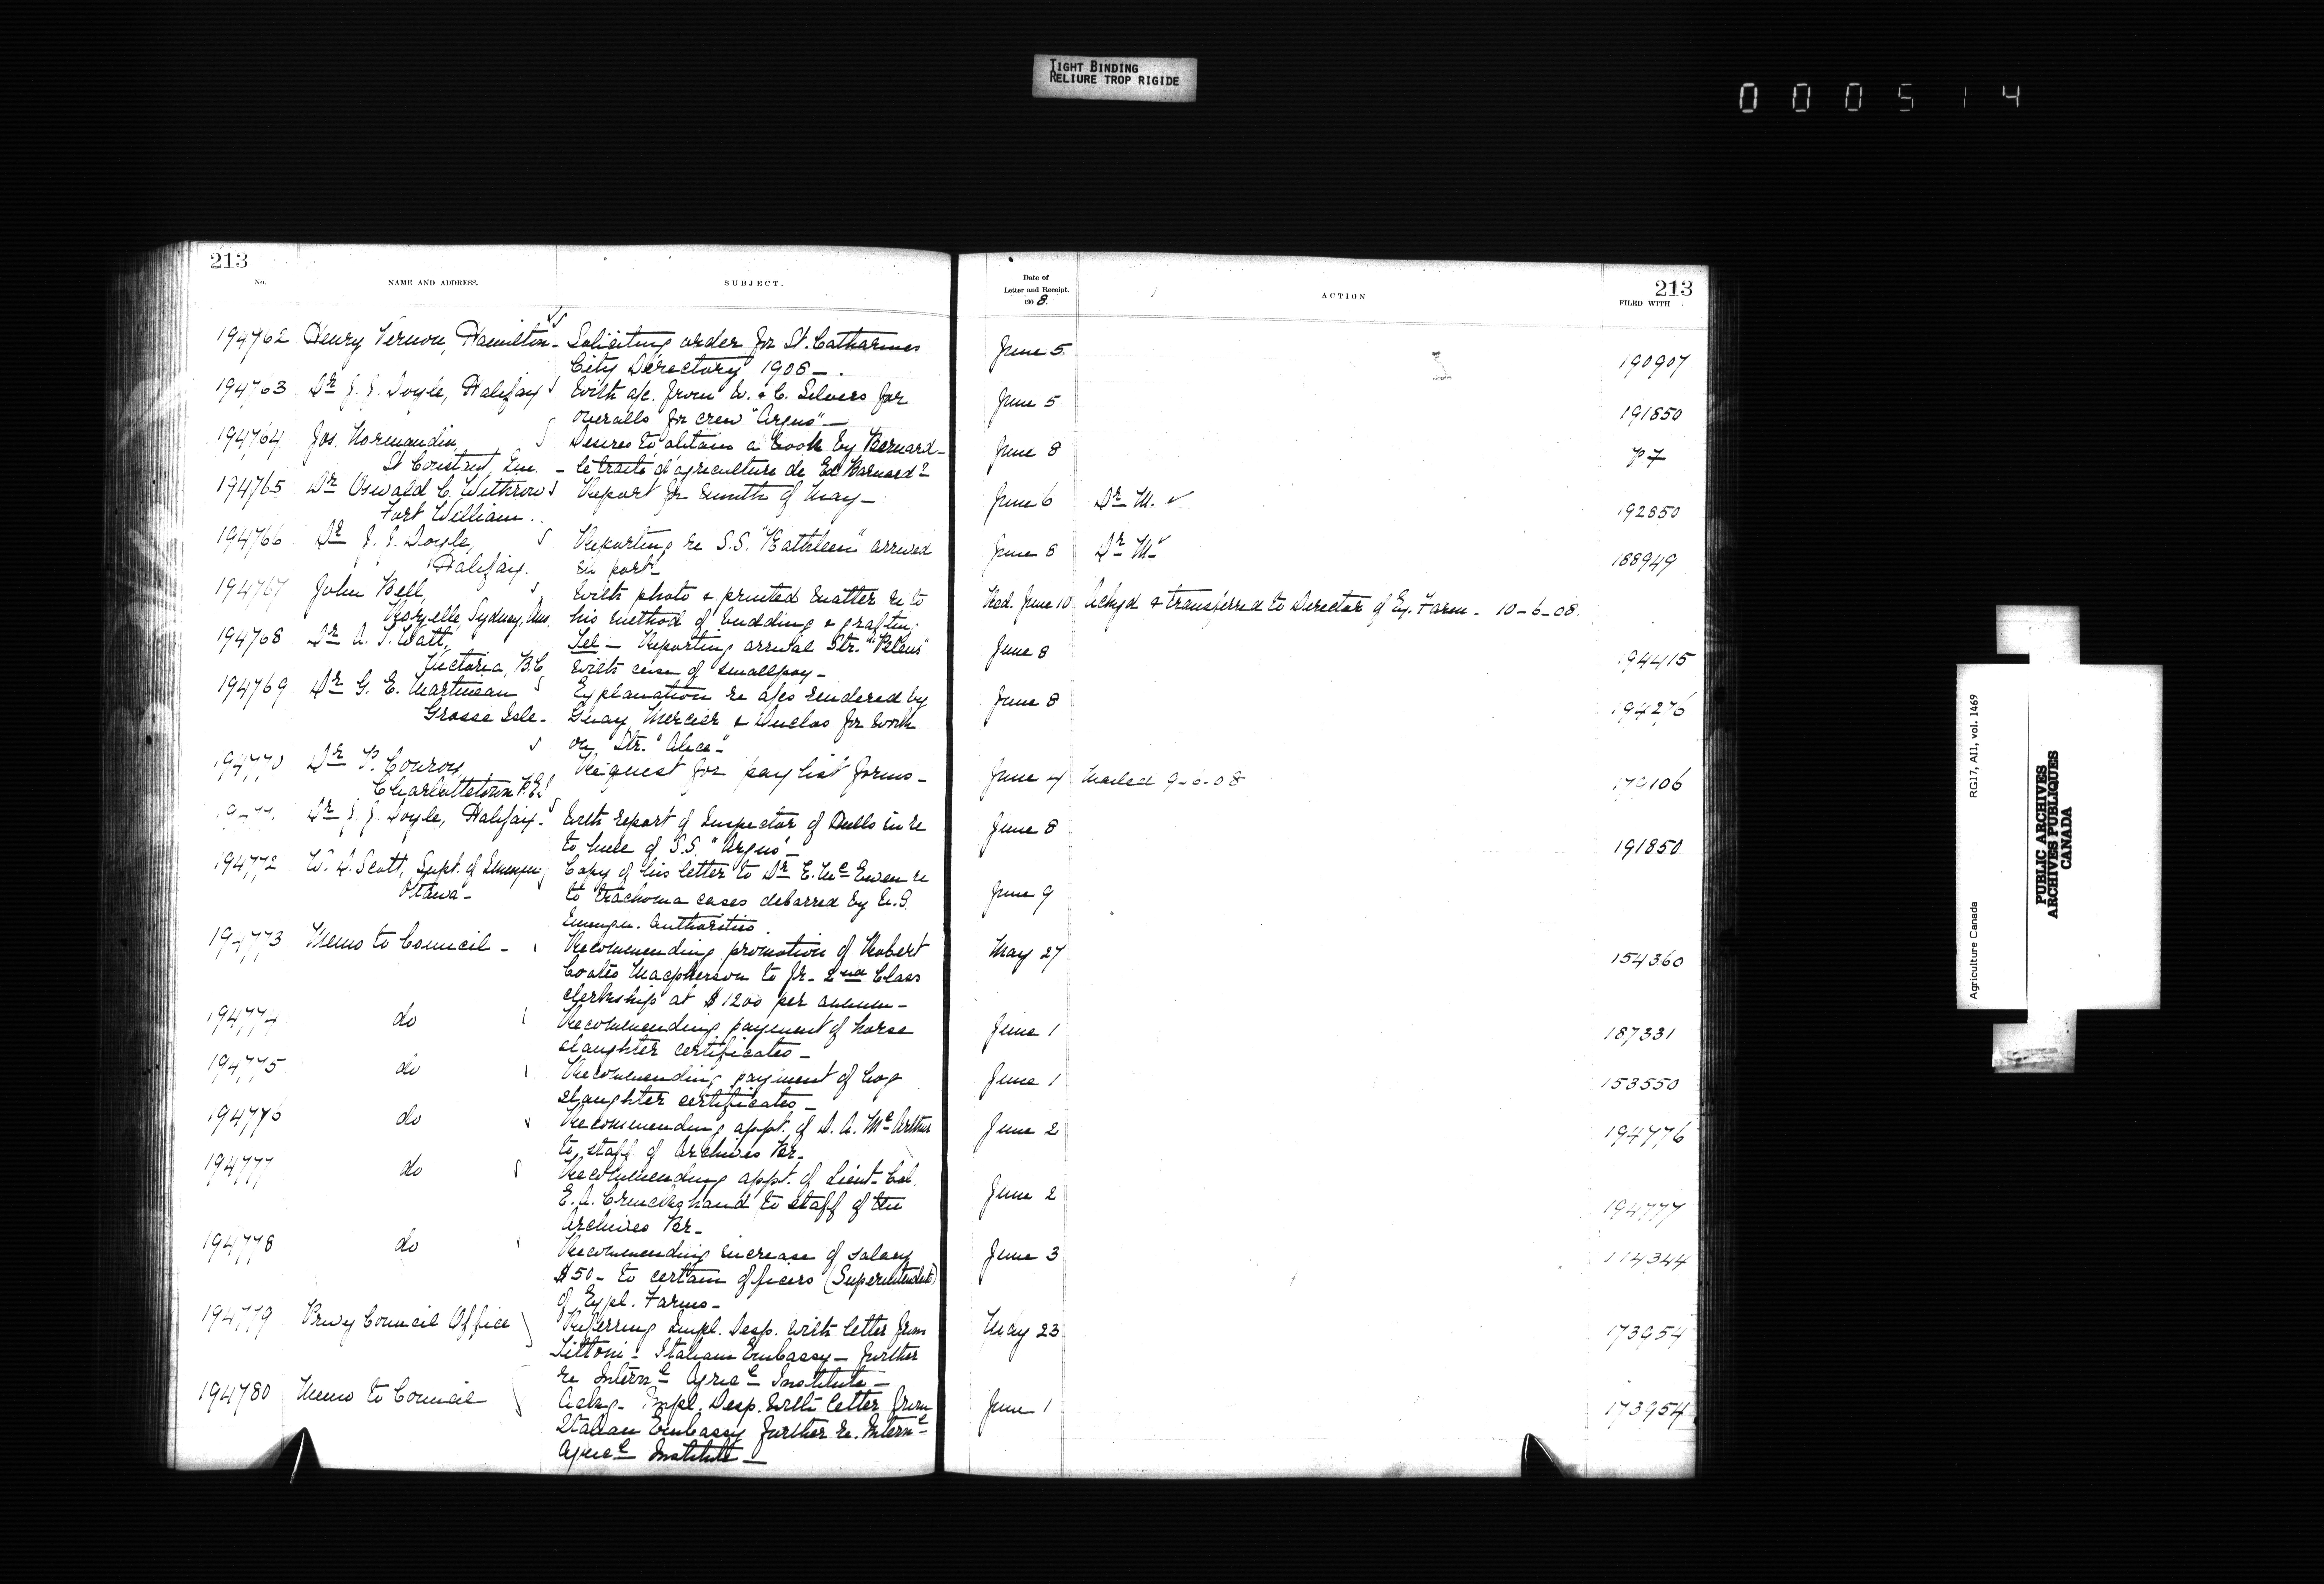 TIGHT BINDING
RELIURE TROP RIGIDE
000514
213
No.
NAME AND ADDRESS.
SUBJECT.
Date of
Letter and Receipt.
1908.
ACTION
213
FILED WITH
194762 Henry Vernon, Hamilton - Soliciting order for St. Catharines June 5 190907
City Directory 1908 -
194763 Dr J. J. Doyle, Halifax With a/c. from W. & C. Silvers for June 5 191850
overalls for crew "Argus" -
194764 Jos. Normandin, Desires to obtain a book by Barnard - June 8 P7
St Constant, Que. - le traité d'agriculture de Ed Barnard?
194765 Dr Oswald C. Withrow Report for month of May - June 6 Dr M. 192850
Fort William.
194766 Dr J. J. Doyle, Reporting re S.S. "Kathleen" arrived June 8 Dr M. 188949
Halifax. in port -
194767 John Bell, With photo & printed matter re to Recd. June 10 Ackgd & transferred to Director of Ex. Farm - 10-6-08.
Sydney, Aus. his method of budding & grafting.
194768 Dr A. T. Watt, Tel - Reporting arrival Str. June 8 194415
Victoria, B.C. with case of smallpox -
194769 Dr G. E. Martineau Explanation re a/cs rendered by June 8 194276
Grosse Isle - Guay, Mercier & Duclos for work
on Str. "Alice" -
194770 Dr P. Conroy Request for pay list forms - June 4 Mailed 9-6-08 179106
Charlottetown P.E.I
Dr J. J. Doyle, Halifax - With report of Inspector of Hulls in re June 8 191850
to hull of S.S. "Argus" -
194772 W. D. Scott, Supt. of Immign Copy of his letter to Dr E. McEwen re June 9
Ottawa - to trachoma cases debarred by U.S.
Immign. authorities.
194773 Memo to Council - Recommending promotion of Robert May 27 154360
Coates Macpherson to Jr. 2nd Class
clerkship at $1200 per annum -
194774 do Recommending payment of horse June 1 187331
slaughter certificates -
194775 do Recommending payment of hog June 1 153550
slaughter certificates -
194776 do Recommending appt. of D. A. McArthur June 2 194776
to staff of Archives Br -
194777 do Recommending appt. of Lieut-Col. June 2 194777
E. A. Cruickshand to staff of the
Archives Br -
194778 do Recommending increase of salary June 3 114344
$50 - to certain officers (Superintendent)
of Expl. Farms -
194779 Privy Council Office Referring Impl. Desp. with letter from May 23 173954
Tittoni - Italian Embassy - further
re Internl Agricl Institute -
194780 Memo to Council Ackg - Impl. Desp. with letter from June 1 173954
Italian Embassy further re. Internl
Agricl Institute -
Agriculture Canada
RG17, AII, vol. 1469
PUBLIC ARCHIVES
ARCHIVES PUBLIQUES
CANADA